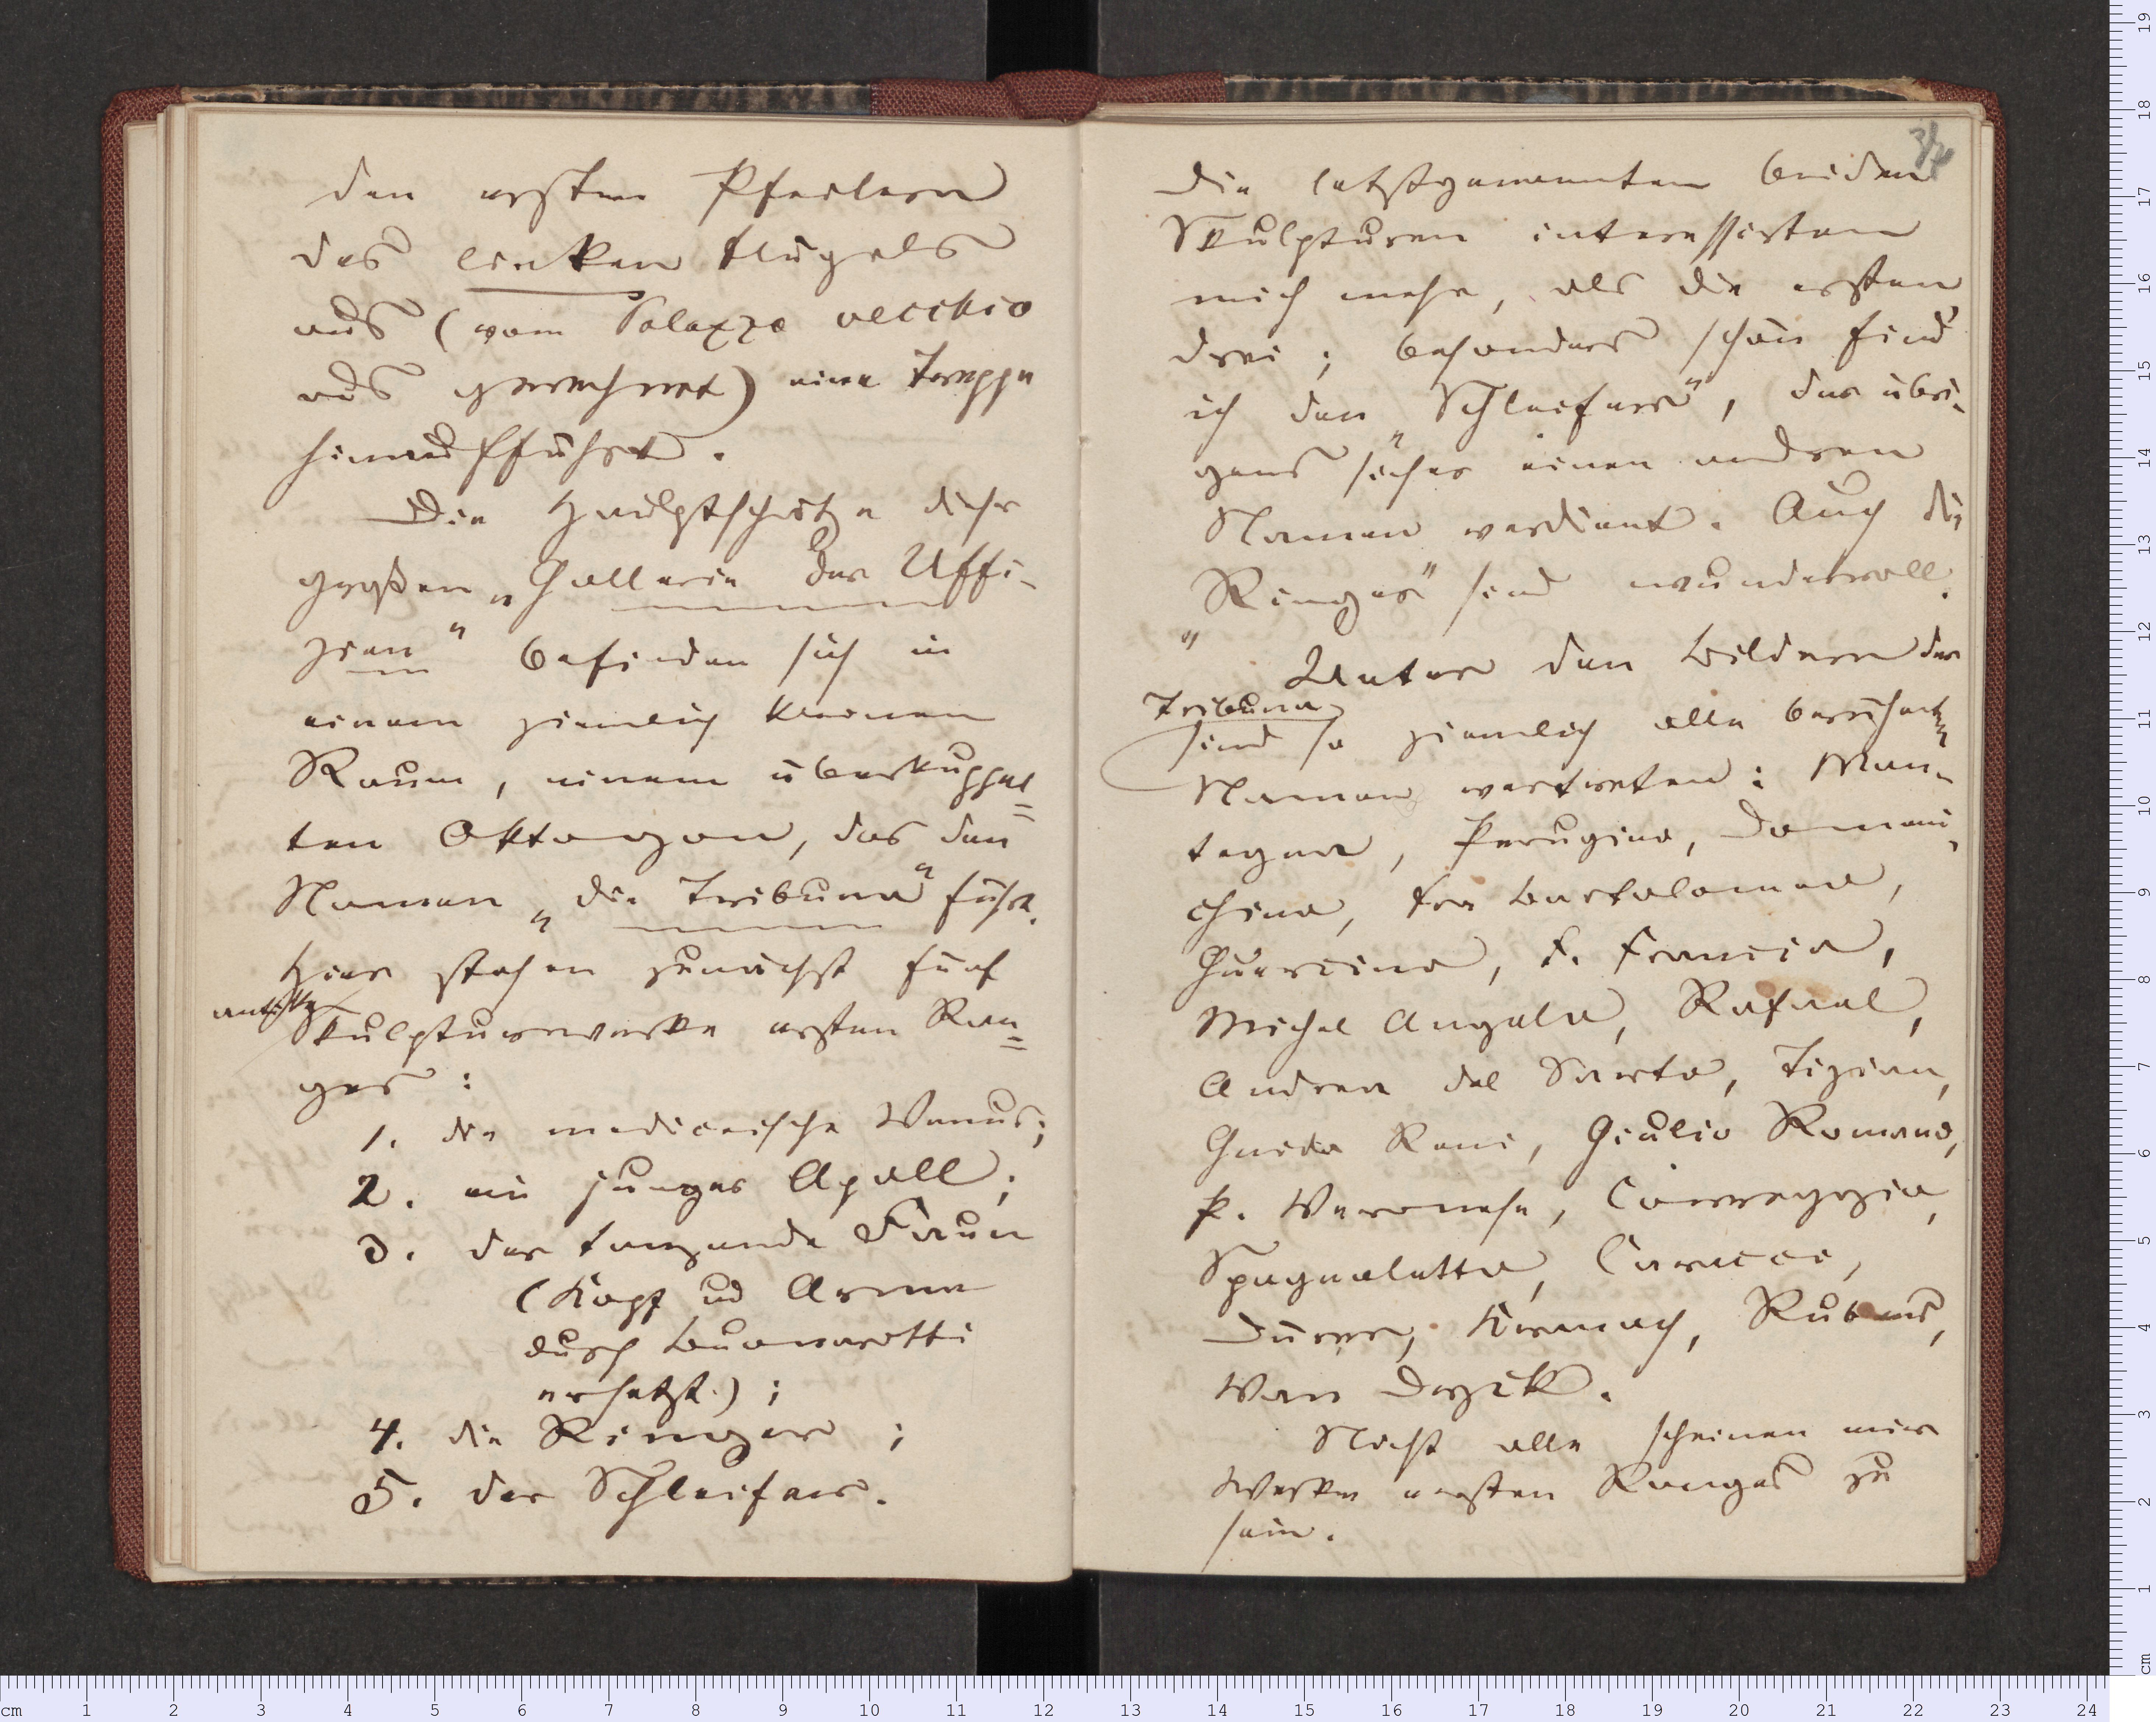 den ersten Pfeilern
des linken Flügels
aus (vom Palazzo vecchio
aus gerechnet) eine Treppe
hinaufführt.
Die Hauptschätze dieser
großen „Gallerie der Uffi-
zien" befinden sich in
einem ziemlich kleinen
Raum, einem überkuppel=
ten Oktogon, das den
Namen „die Tribuna" führt.
Hier stehen zunächst fünf
antike
Skulpturwerke ersten Ran=
ges:
1. die mediceische Venus;
2. ein junger Apoll;
3. der tanzende Faun
(Kopf und Arme
durch Buonarotti
ersetzt.);
4. die Ringer;
5. der Schleifer.
Die letztgenannten beiden
Skulpturen interessirten
mich mehr, als die ersten
drei; besonders schön find
ich den „Schleifer", der übri-
gens sicher einen andren
Namen verdient. Auch die
„Ringer" sind wundervoll.
Unter den Bildern der
Tribuna
sind so ziemlich alle berühmten
Namen vertreten: Man-
tegna, Perugino, Domeni-
chino, Fra Bartolomeo,
Guercino, F. Francia,
Michel Angelo, Rafael,
Andrea del Sarto, Tizian,
Guido Reni, Giulio Romano,
P. Veronese, Correggio,
Spagnoletto, Caracci,
Dürer, Kranach, Rubens,
Van Dyck.
Nicht alle scheinen mir
Werke ersten Ranges zu
sein.